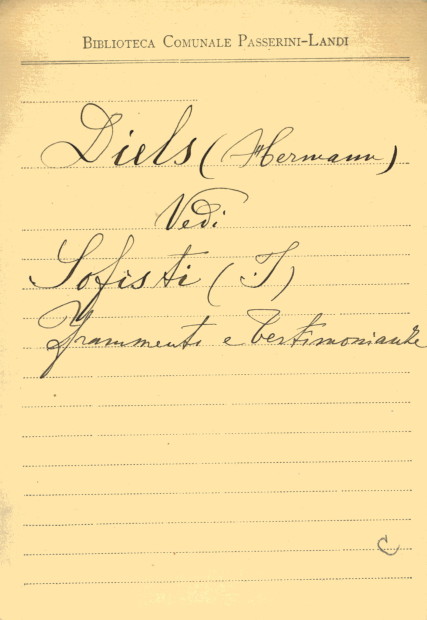 BIBLIOTECA COMUNALE PASSERINI-LANDI
Diels (Hermann)
Vedi
Sofisti (I)
Frammenti e testimonianze
C